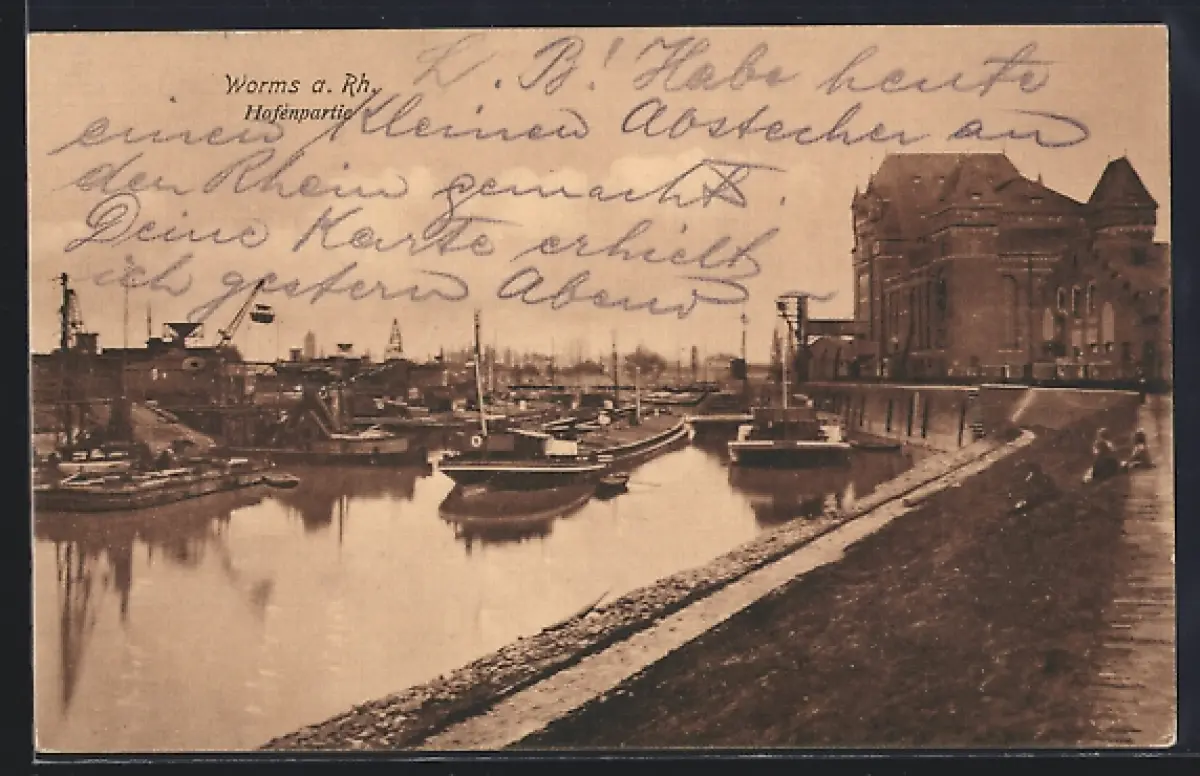 Worms a. Rh.
Hafenpartie
L. B! Habe heute
einen kleinen Abstecher an
den Rhein gemacht.
Deine Karte erhielt
ich gestern Abend